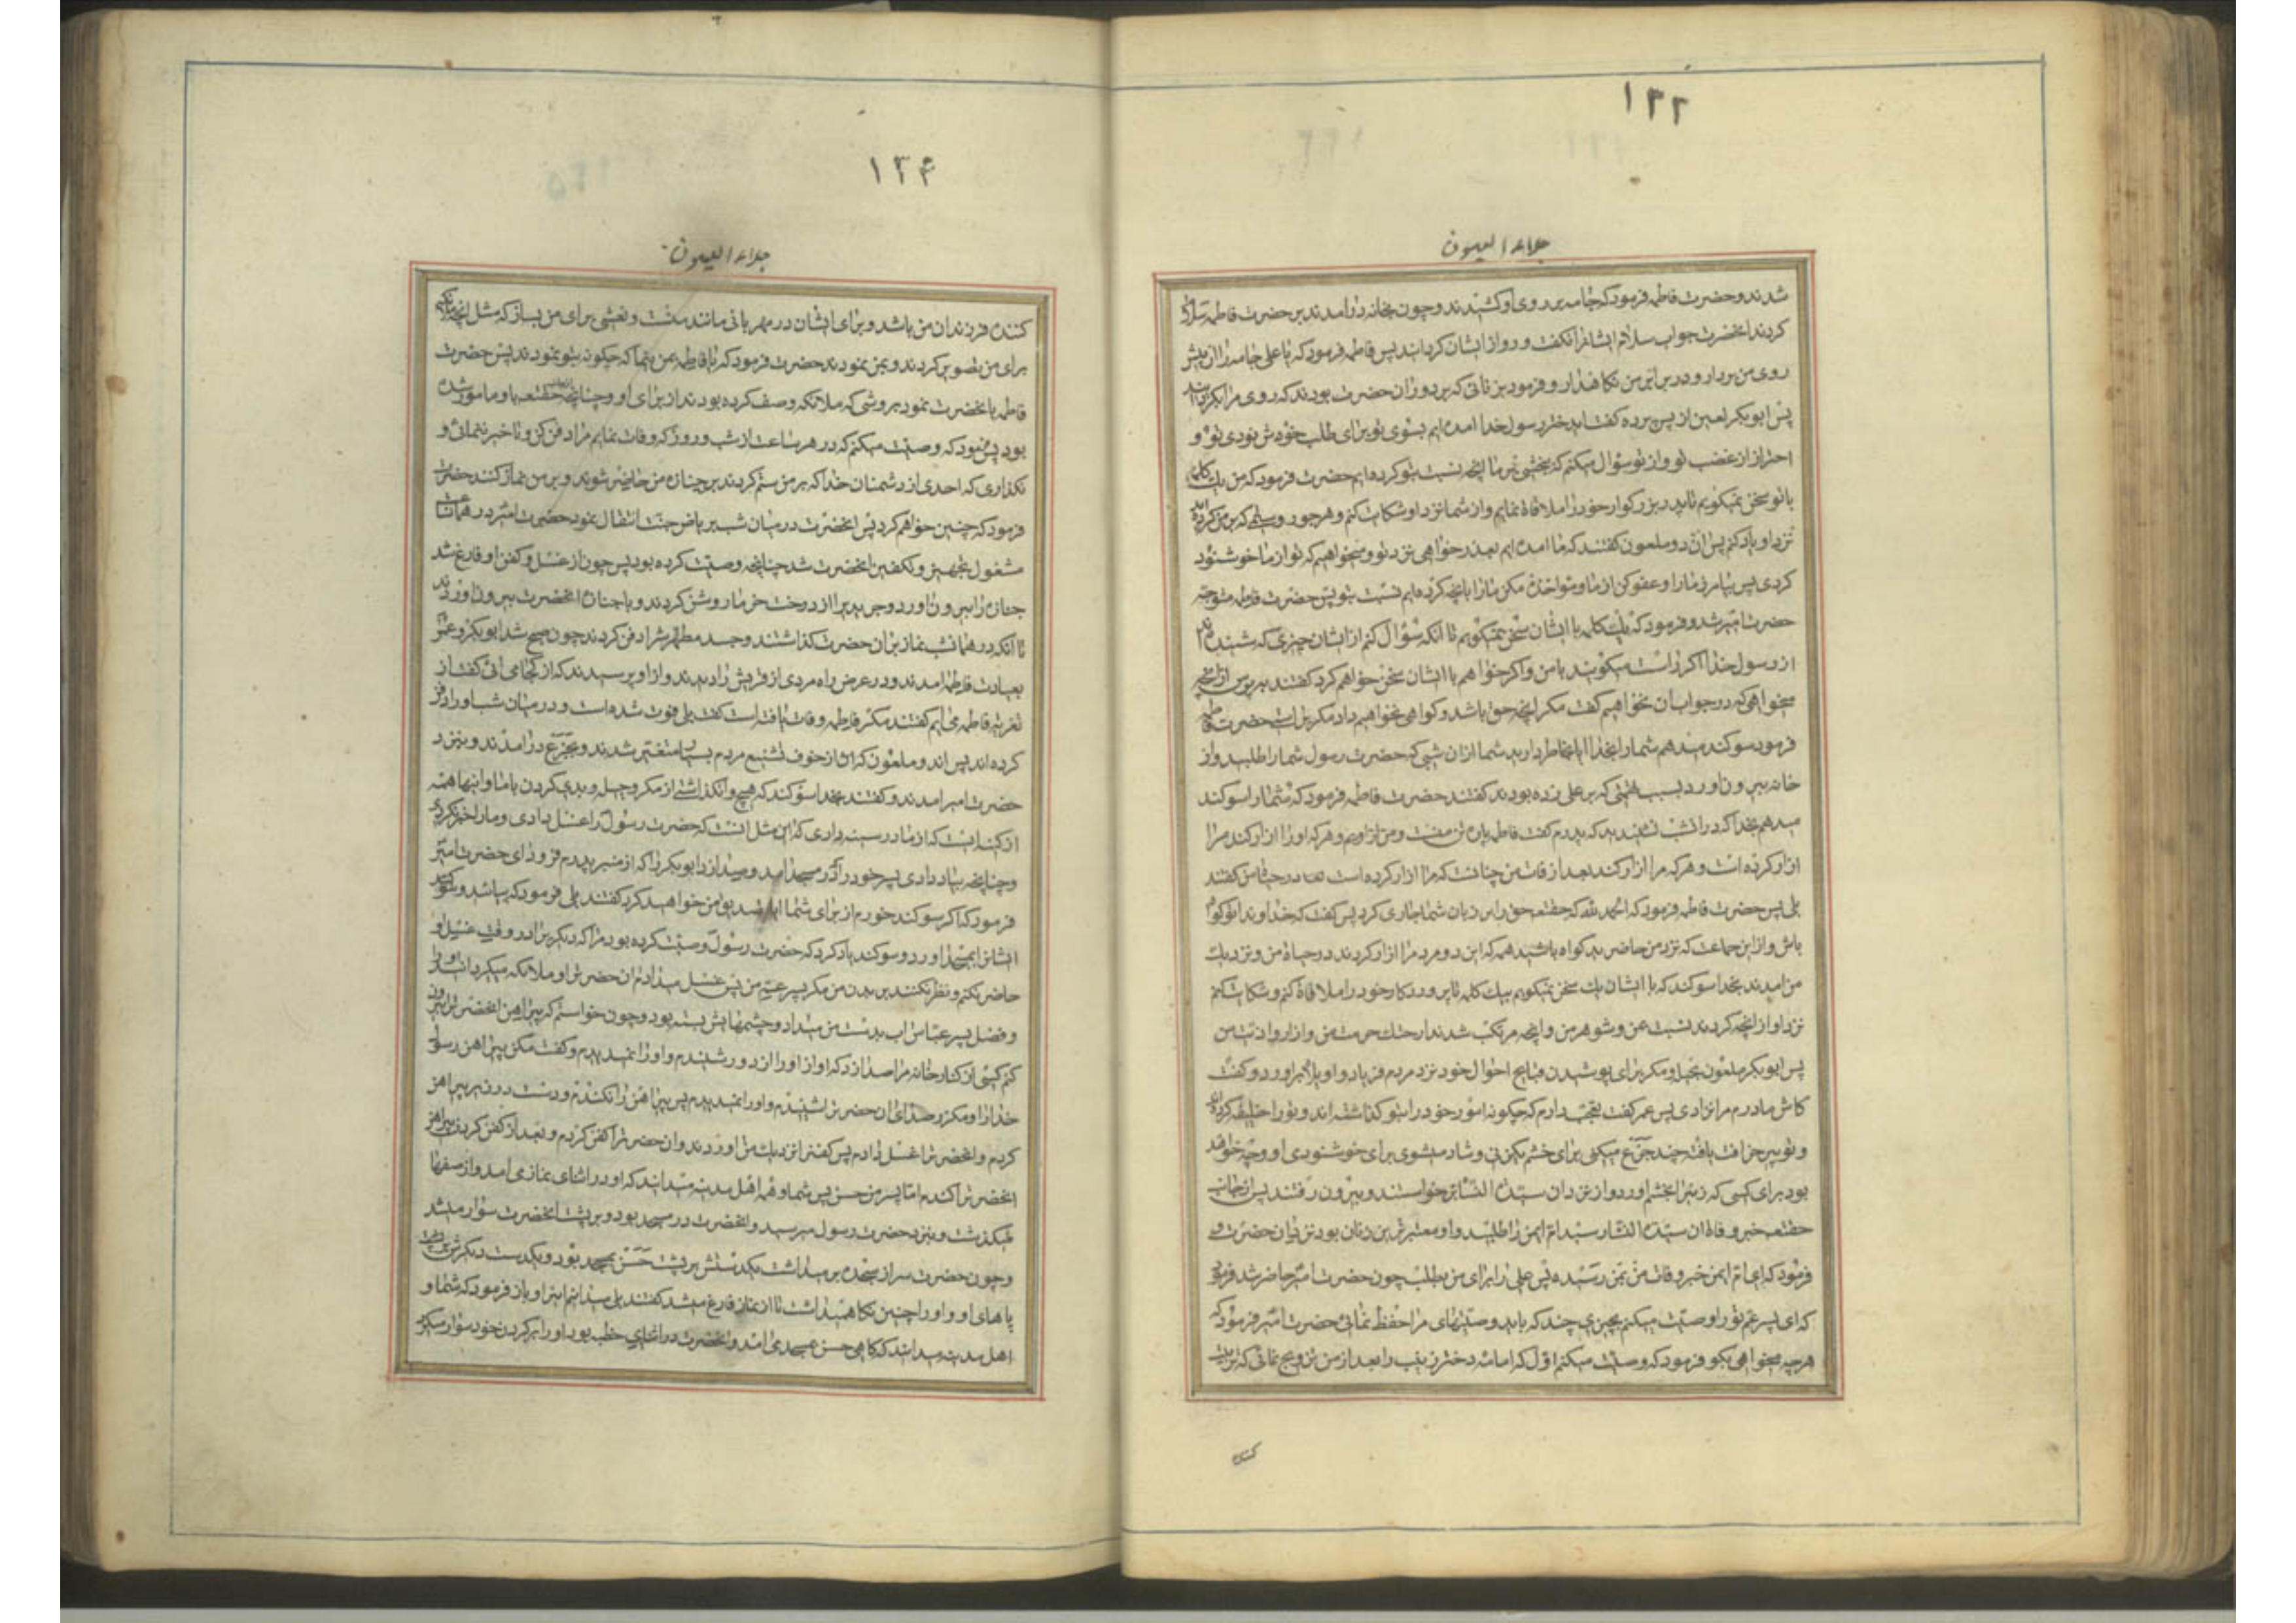 ١٢٢
جلاء العیون
شدند و حضرت فاطمه فرمود که جامه بر روی او کشیدند و چون بخانه درآمدند بر حضرت فاطمه سلام
کردند انحضرت جواب سلام ایشانرا نگفت و رو از ایشان گردانید پس فاطمه فرمود که یا علی جامه را از پیش
روی من بردار و در برابر من نگاهدار و فرمود بزنانی که بر دور ان حضرت بودند که روی مرا بگردانید
پس ابوبکر لعین از پس پرده گفت ایدختر رسول خدا امده ایم بسوی تو برای طلب خوشنودی تو و
احتراز از غضب تو و از تو سؤال میکنم که ببخشی بر ما انچه نسبت بتو کرده ایم حضرت فرمود که من یک کلمه
با تو سخن نمیگویم تا پدر بزرگوار خود را ملاقاة نمایم و از شما نزد او شکایت کنم و هر جور و ستمی که بر من کرده اید
نزد او یاد کنم پس ان دو ملعون گفتند که ما امده ایم بعذر خواهی نزد تو و میخواهیم که تو از ما خوشنود
گردی پس بیامرز ما را و عفو کن از ما و مؤاخذه مکن ما را بانچه کرده ایم نسبت بتو پس حضرت فاطمه متوجه
حضرت امیر شد و فرمود که یک کلمه با ایشان سخن نمیگویم تا انکه سؤال کنم از ایشان چیزی که شنیده اند
از رسول خدا اگر راست میگویند با من و اگر خواهم با ایشان سخن خواهم کرد گفتند بپرس از انچه
میخواهی که در جواب ان نخواهیم گفت مگر انچه حق باشد و گواهی نخواهیم داد مگر براستی حضرت فاطمه
فرمود سوگند میدهم شما را بخدا ایا بخاطر دارید شما از ان شبی که حضرت رسول شما را طلبید و از
خانه بیرون اورد بسبب که بر علی زده بودند گفتند حضرت فاطمه فرمود که شما را سوگند
میدهم بخدا که در انشب شنیدید که پدرم گفت فاطمه پاره تن منست و من از اویم و هر که او را ازار کند مرا
ازار کرده است و هر که مرا ازار کند بعد از فات من چنانست که مرا ازار کرده است در حیات من گفتند
بلی پس حضرت فاطمه فرمود که الحمد لله که حقتعالی حق را بر زبان شما جاری کرد پس گفت که خداوندا تو گواه
باش و از این جماعت که نزد من حاضرید گواه باشید همه که این دو مرد مرا ازار کردند در حیاة من و نزدیک
من امدند بخدا سوگند که با ایشان یک سخن نمیگویم بیک کلمه تا پروردکار خود را ملاقاة کنم و شکایت کنم
نزد او از انچه کردند نسبت بمن و شوهر من و انچه مرتکب شدند از هتک حرمت من و ازار و اذیت من
پس ابوبکر ملعون بحیله و مکر برای پوشیدن قبایح احوال خود نزد مردم فریاد واویلا براورد و گفت
کاش مادرم مرا نزادی پس عمر گفت تعجب دارم که چگونه امور خود را بتو گذاشته اند و تو را خلیفه کرده اند
و تو پیر خرافت یافته چند جزع میکنی برای خشم یکزنی و شاد میشوی برای خوشنودی او و چه خواهد
بود برای کسی که زنیرا بخشم اورد و از نزد ان سیدة النساء برخواستند و بیرون رفتند پس از جانب
حقتعالی خبر وفاة ان سیدة النساء رسید ام ایمن را طلبید و او معتبر ترین زنان بود نزد ان حضرت و
فرمود که ای ام ایمن خبر وفات من بمن رسیده پس علی را برای من بطلب چون حضرت امیر حاضر شد فرمود
که ای پسر عم تو را وصیت میکنم بچیزی چند که باید وصیتهای مرا حفظ نمائی حضرت امیر فرمود که
هر چه میخواهی بگو فرمود که وصیت میکنم اول که امامه دختر زینب را بعد از من تزویج نمائی که تربیت
کننده
١٢۴
جلاء العیون
کننده فرزندان من باشد و برای ایشان در مهربانی مانند منست و نعشی برای من بساز که مثل انچه ملائکه
برای من تصویر کردند و بمن نمودند حضرت فرمود که یا فاطمه بمن بنما که چگونه بتو نمودند پس حضرت
فاطمه بانحضرت نمود بروشی که ملائکه وصف کرده بودند از برای او و چنانچه حقتعالی باو مامور شده
بود پس فرمود که وصیت میکنم که در هر ساعت از شب و روز که وفات نمایم مرا دفن کن و تاخیر ننمائی و
نگذاری که احدی از دشمنان خدا که بر من ستم کردند بر جنازه من حاضر شوند و بر من نماز کنند حضرت
فرمود که چنین خواهم کرد پس انحضرت در میان شب بریاض جنت انتقال نمود حضرت امیر در همان ساعت
مشغول تجهیز و تکفین انحضرت شد چنانچه وصیت کرده بود پس چون از غسل و کفن او فارغ شد
جنازه را بیرون اورد و جریدیرا از درخت خرما روشن کردند و با جنازه انحضرت بیرون اوردند
تا انکه در همانشب نماز بر ان حضرت گذاشتند و جسد مطهرش را دفن کردند چون صبح شد ابوبکر و عمر
بعیادت فاطمه امدند و در عرض راه مردی از قریش را دیدند و از او پرسیدند که از کجا می ائی گفت از
تعزیه فاطمه می ایم گفتند مگر فاطمه وفات یافته است گفت بلی فوت شده است و در میان شب او را دفن
کرده اند پس اندو ملعون از خوف تشنیع مردم بسیار متغیر شدند و بجزع درامدند و بنزد
حضرت امیر امدند و گفتند بخدا سوگند که هیچ وانگذاشتی از مکر و حیله و بدی کردن با ما و اینها همه
از کینه ایست که از ما در سینه داری که این مثل انست که حضرت رسول را غسل دادی و ما را خبر نکردی
و چنانچه یاد دادی پسر خود را که در مسجد امد و صدا زد ابوبکر را که از منبر پدرم فرود ای حضرت امیر
فرمود که اگر سوگند خورم از برای شما ایا تصدیق من خواهید کرد گفتند بلی فرمود که بیائید و
ایشانرا بمسجد اورد و سوگند یاد کرد که حضرت رسول وصیت کرده بود مرا که دیگریرا در وقت غسل او
حاضر نکنم و نظر نکنند بر بدن من مگر پسر عم من پس غسل میدادم ان حضرت را و ملائکه میگردانیدند او را
و فضل پسر عباس اب بدست من میداد و چشمهایش بسته بود و چون خواستم که پیراهن انحضرت را بیرون
کنم کسی از کنار خانه مرا صدا زد که اواز او را از دور شنیدم و او را نمیدیدم و گفت مکن پیراهن رسول
خدا را و مکرر صدای ان حضرت را شنیدم و او را نمیدیدم پس پیراهن را نکندم و دست در زیر پیراهن
کردم و انحضرت را غسل دادم پس کفن را نزدیک من اوردند و ان حضرت را کفن کردم و بعد از کفن کردن پیراهن
انحضرت را کندم اما پسر من حسن پس شما و همه اهل مدینه میدانند که او در اثنای نماز می امد و از صفها
میگذشت و بنزد حضرت رسول میرسید و انحضرت در سجود بود و بر پشت انحضرت سوار میشد
و چون حضرت سر از سجده بر میداشت یکدستش بر پشت حسن بود و یکدست دیگرش
پاهای او و او را چنین نگاه میداشت تا از نماز فارغ میشد گفتند بلی میدانیم اینرا و باز فرمود که شما و
اهل مدینه میدانند که گاهی حسن بمسجد می امد و انحضرت در اثنای خطبه بود او را بر گردن خود سوار میکرد